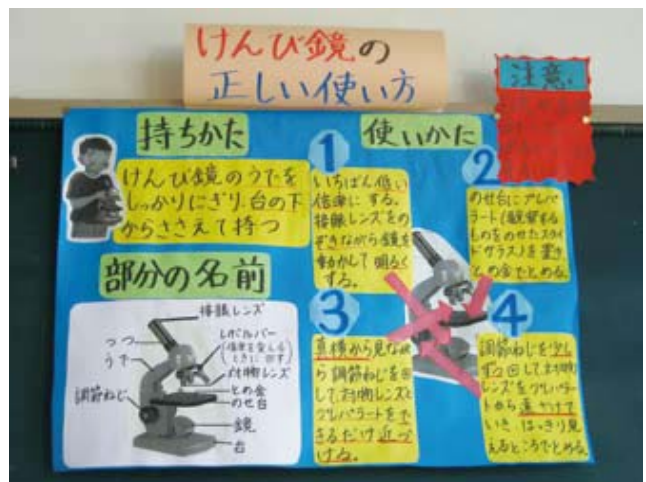 けんび鏡の
正しい使い方
注意
持ちかた
けんび鏡のうでを
しっかりにぎり、台の下
からささえて持つ
部分の名前
接眼レンズ
つつ
レボルバー
(倍率を変える
ときに回す)
うで
対物レンズ
調節ねじ
とめ金
のせ台
鏡
台
使いかた
1
いちばん低い
倍率にする。
接眼レンズをの
ぞきながら鏡を
動かして明るく
する。
2
のせ台にプレパ
ラート(観察する
ものをのせたスライ
ドガラス)を置き、
とめ金でとめる。
3
真横から見なが
ら調節ねじを回
して、対物レンズと
プレパラートをで
きるだけ近づ
ける。
4
調節ねじを少し
ずつ回して、対物
レンズをプレパラー
トから遠ざけて
いき、はっきり見
えるところでとめる。